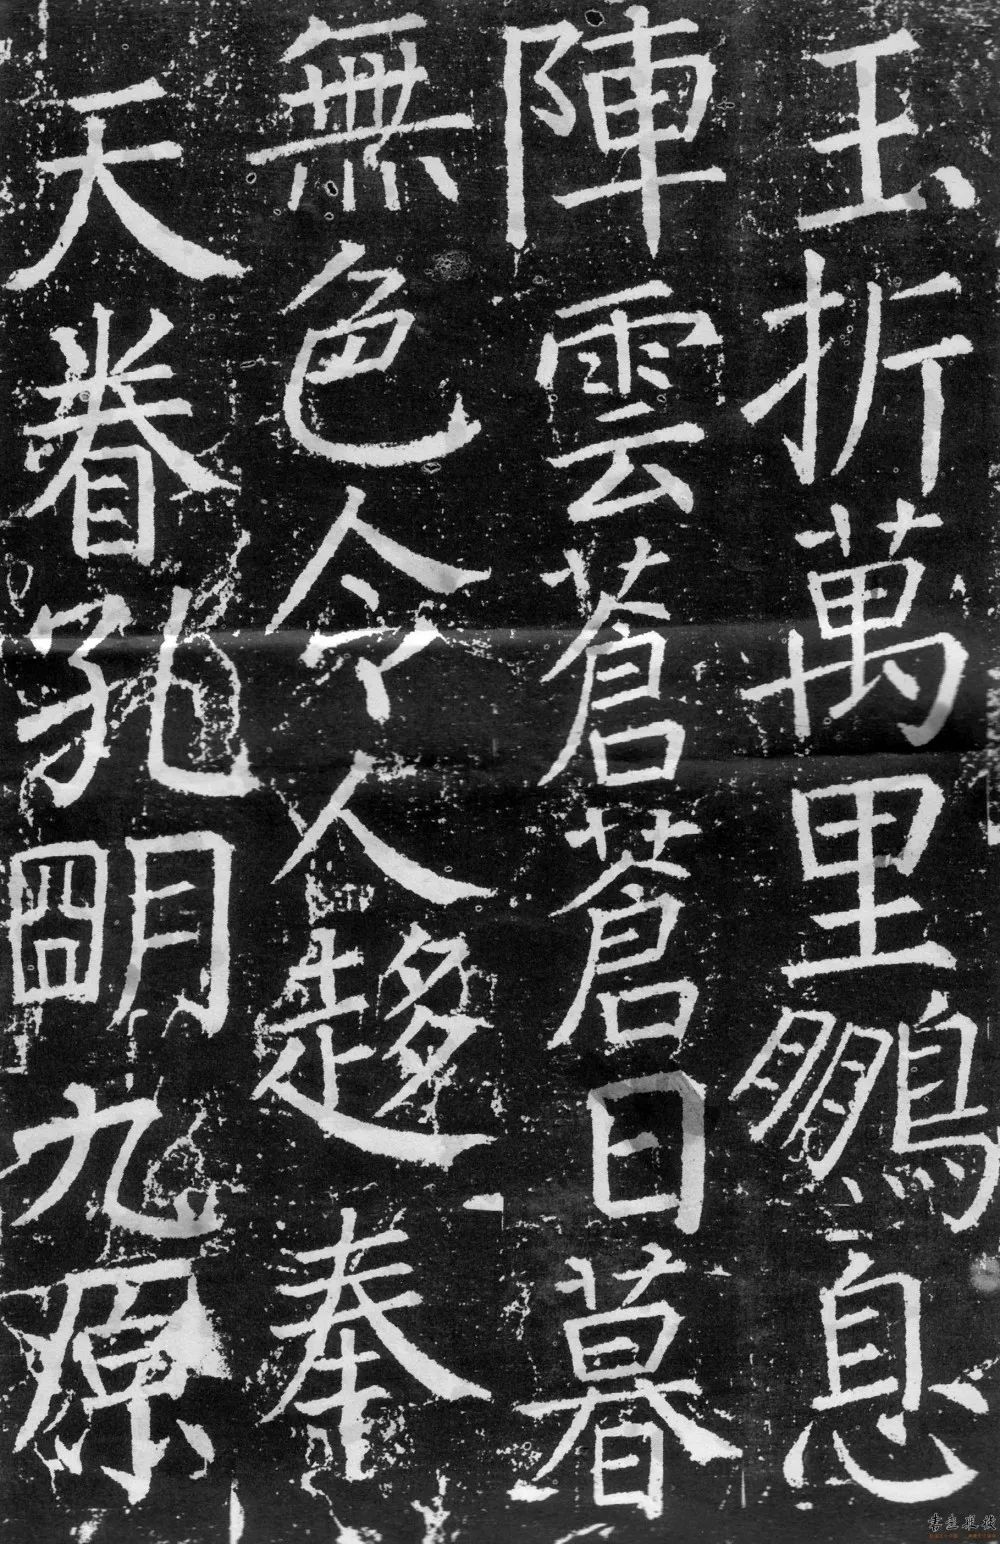 玉折萬里鵬息
陣雲蒼蒼日暮
無色令人趍奉
天眷孔明九原